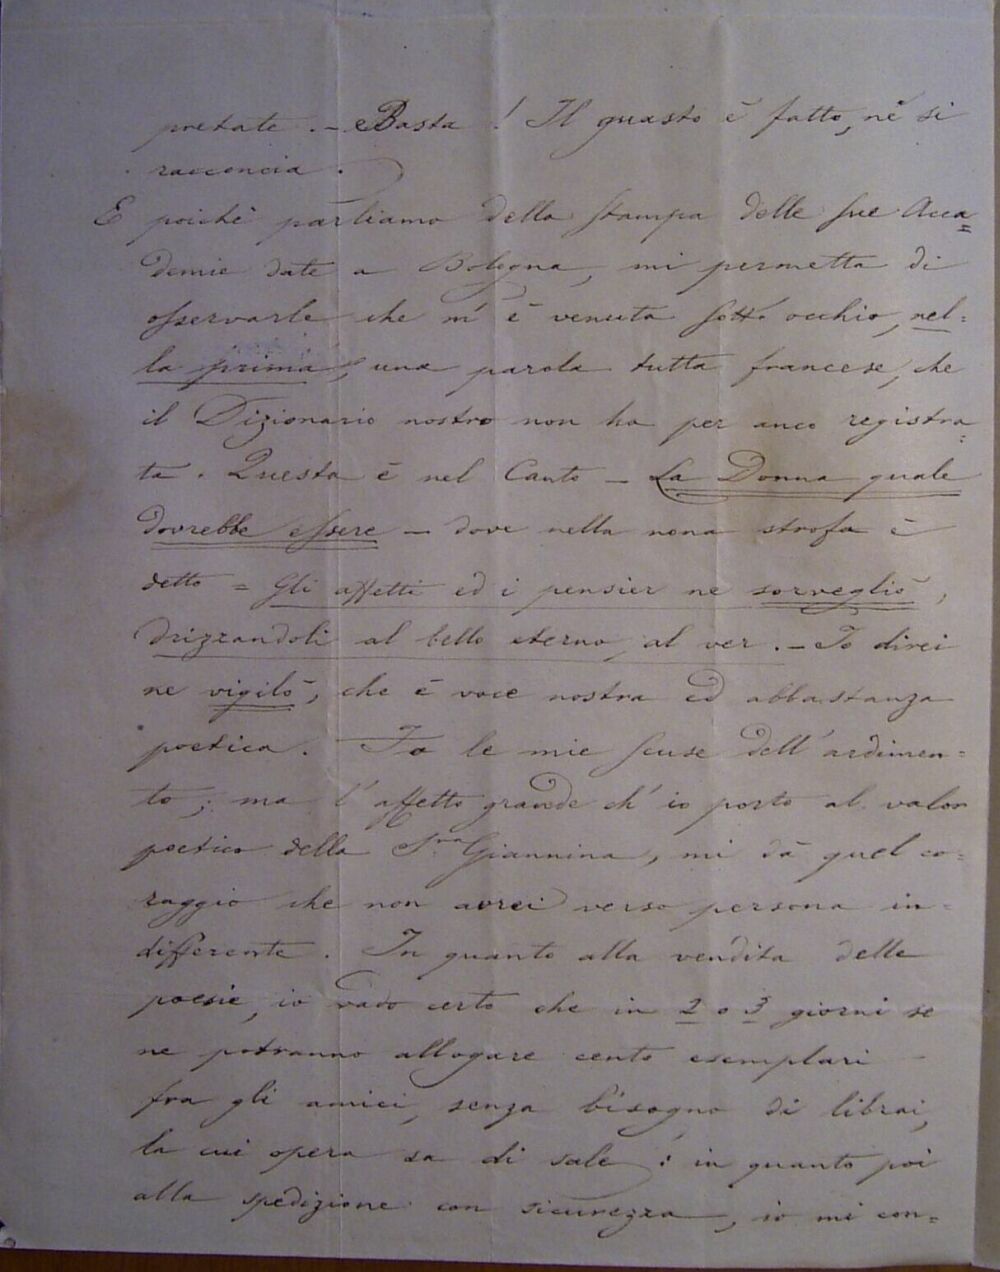 pretate. - Basta! Il guasto è fatto, nè si
racconcia.
E poichè parliamo della stampa delle sue Acca=
demie date a Bologna, mi permetta di
osservarle che m'è venuta sotto occhio, nel=
la prima, una parola tutta francese, che
il Dizionario nostro non ha per anco registra=
ta. Questa è nel Canto - La Donna quale
dovrebbe essere - dove nella nona strofa è
detto = Gli affetti ed i pensier ne sorvegliò,
drizzandoli al bello eterno, al ver. - Io direi
ne vigilò, che è voce nostra ed abbastanza
poetica. Fo le mie scuse dell'ardimen=
to; ma l'affetto grande ch'io porto al valor
poetico della Sra Giannina, mi dà quel co=
raggio che non avrei verso persona in=
differente. In quanto alla vendita delle
poesie, io vado certo che in 2 o 3 giorni se
ne potranno allogare cento esemplari
fra gli amici, senza bisogno di librai,
la cui opera sa di sale: in quanto poi
alla spedizione con sicurezza, io mi con=